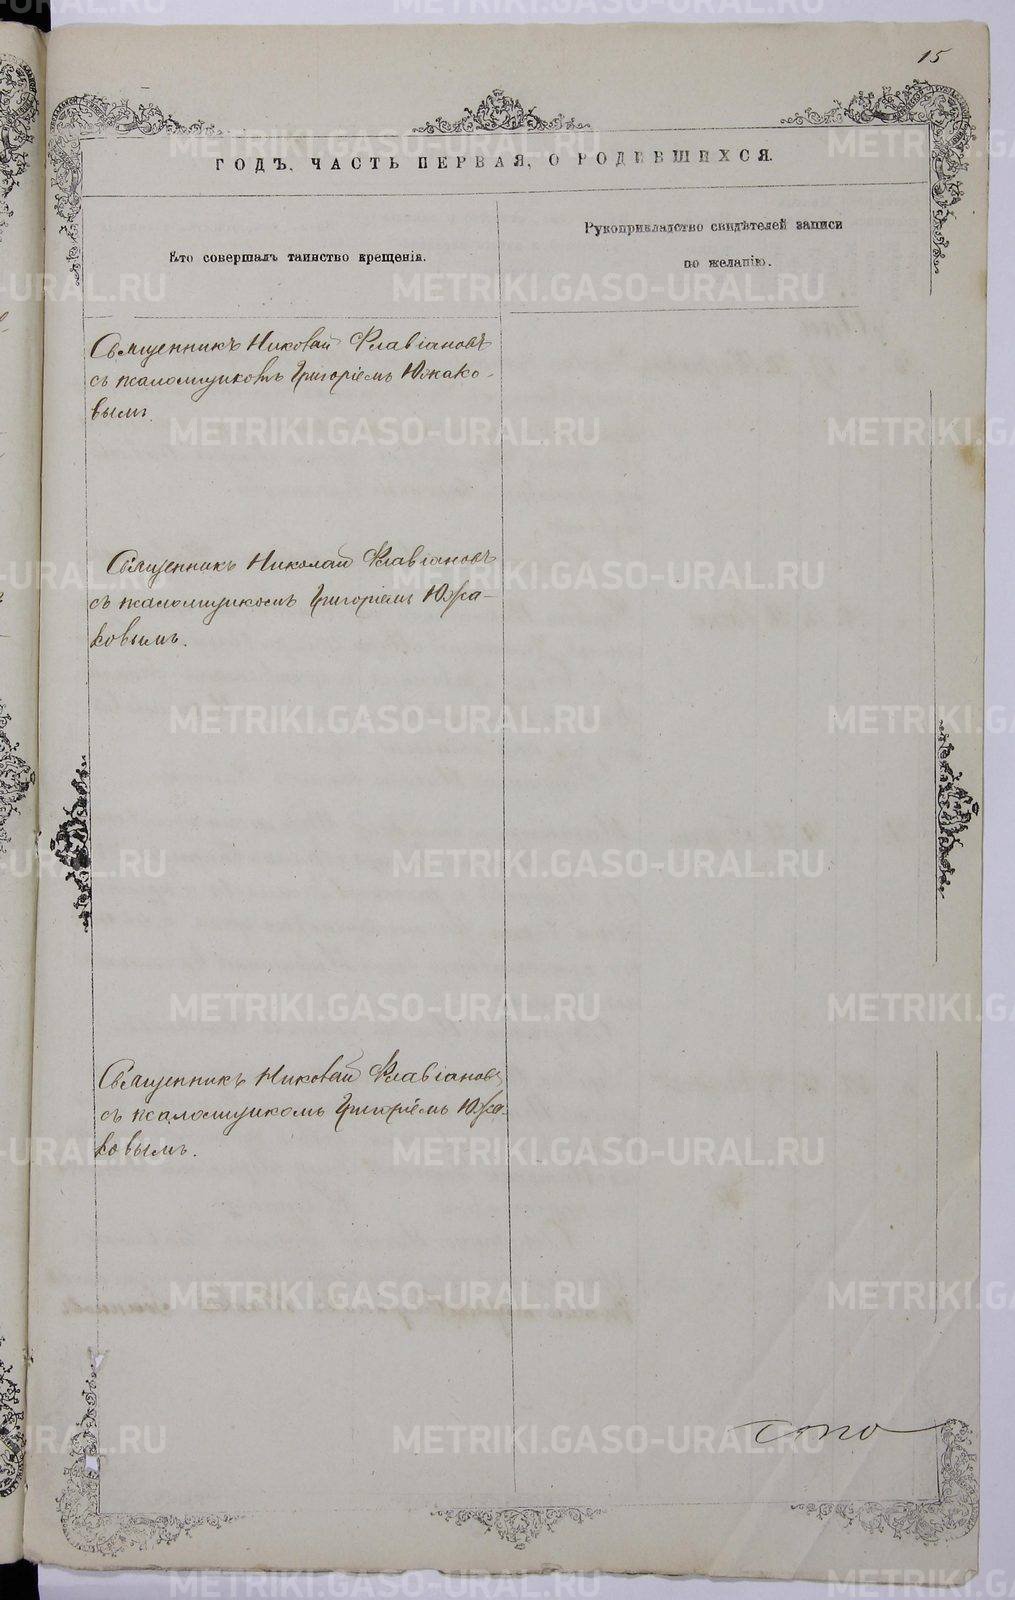 15
ГОДЪ, ЧАСТЬ ПЕРВАЯ, О РОДИВШИХСЯ.
Кто совершалъ таинство крещенія.
Рукоприкладство свидѣтелей записи
по желанію.
Священникъ Николай Флавіановъ
съ псаломщикомъ Григоріемъ Южако-
вымъ.
Священникъ Николай Флавіановъ
съ псаломщикомъ Григоріемъ Южа-
ковымъ.
Священникъ Николай Флавіановъ
съ псаломщикомъ Григоріемъ Южа-
ковымъ.
METRIKI.GASO-URAL.RU